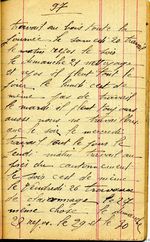 97
travail au bois toute la
journée le samedi 20 travail
le matin repos le soir
le dimanche 21 nettoyage
et repos il pleut tout le
jour le lundi c'est de
même pas de travail
le mardi il pleut toujours
aussi nous ne travaillons
que le soir le mercredi
travail tout le jour le
jeudi matin travail au
bois du cantonnement
le soir c'est de même
le vendredi 26
de clayonnage le 27
même chose le dimanche
28 repos le 29 et le 30